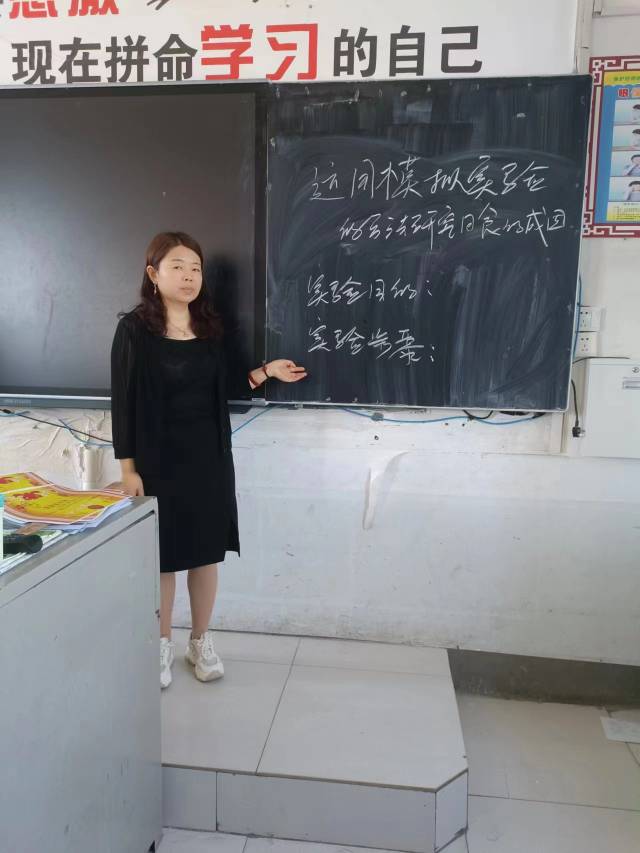 感激
现在拼命学习的自己
运用模拟实验
的方法研究日食的成因
实验目的：
实验步聚：
眼